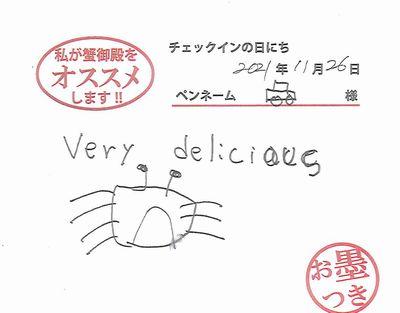 私が蟹御殿を
オススメ
します!!
チェックインの日にち
2021年11月26日
ペンネーム 様
Very delicious
お墨
つき